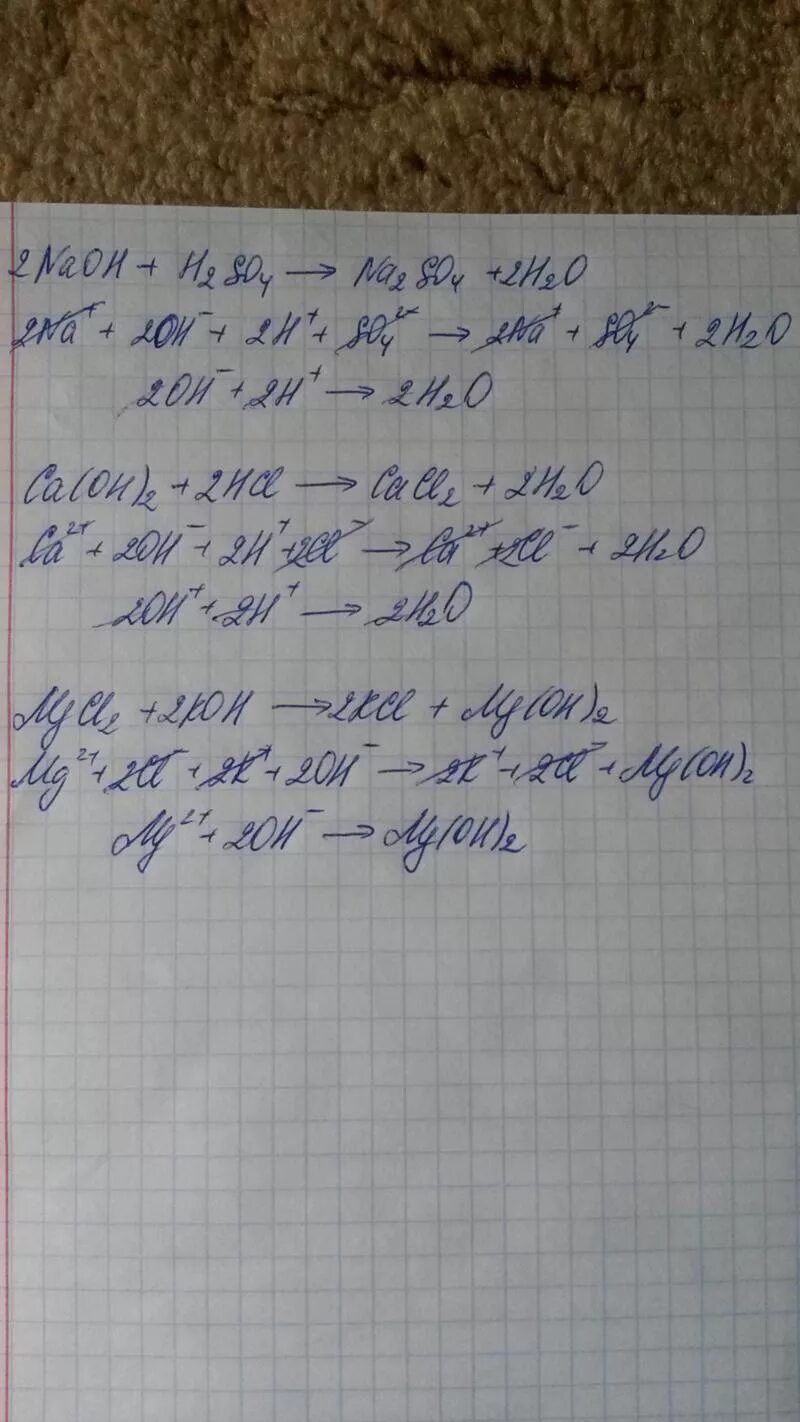 2NaOH + H₂SO₄ → Na₂SO₄ + 2H₂O
2Na⁺ + 2OH⁻ + 2H⁺ + SO₄²⁻ → 2Na⁺ + SO₄²⁻ + 2H₂O
2OH⁻ + 2H⁺ → 2H₂O
Ca(OH)₂ + 2HCl → CaCl₂ + 2H₂O
Ca²⁺ + 2OH⁻ + 2H⁺ + 2Cl⁻ → Ca²⁺ + 2Cl⁻ + 2H₂O
2OH⁺ + 2H⁺ → 2H₂O
MgCl₂ + 2KOH → 2KCl + Mg(OH)₂
Mg²⁺ + 2Cl⁻ + 2K⁺ + 2OH⁻ → 2K⁺ + 2Cl⁻ + Mg(OH)₂
Mg²⁺ + 2OH⁻ → Mg(OH)₂